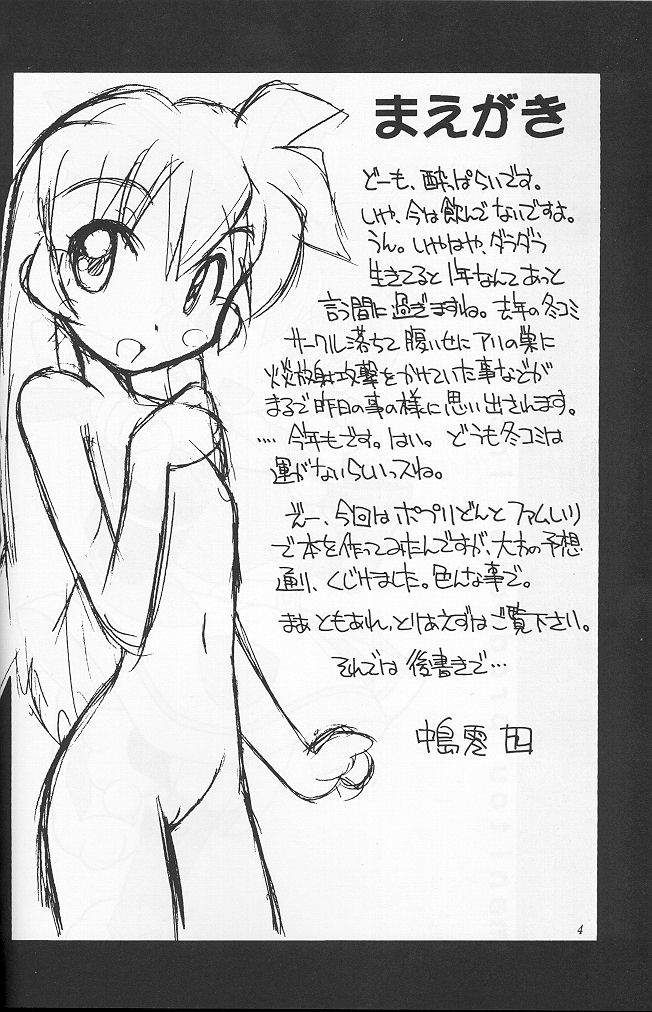 まえがき
どーも、酔っぱらいです。
いや、今は飲んでないですよ。
うん。いやはや、ダラダラ
生きてると1年なんてあっと
言う間に過ぎますね。去年の冬コミ
サークル落ちて腹いせにアリの巣に
火炎放射攻撃をかけていた事などが
まるで昨日の事の様に思い出されます。
…. 今年もです。はい。どうも冬コミは
運がないらしいっスね。
えー、今回はポプリどんとファムしいり
で本を作ってみたんですが、大方の予想
通り、くじけました。色んな事で。
まぁともあれ、とりあえずはご覧下さい。
それでは後書きで…
中島零
4